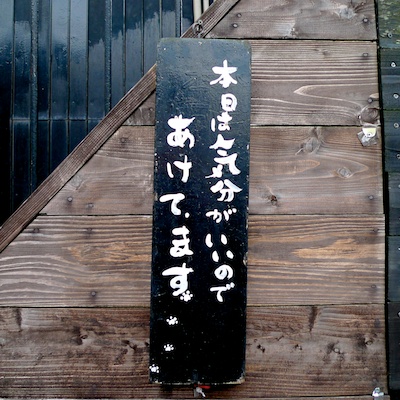 本日は気分がいいので
あけてます。